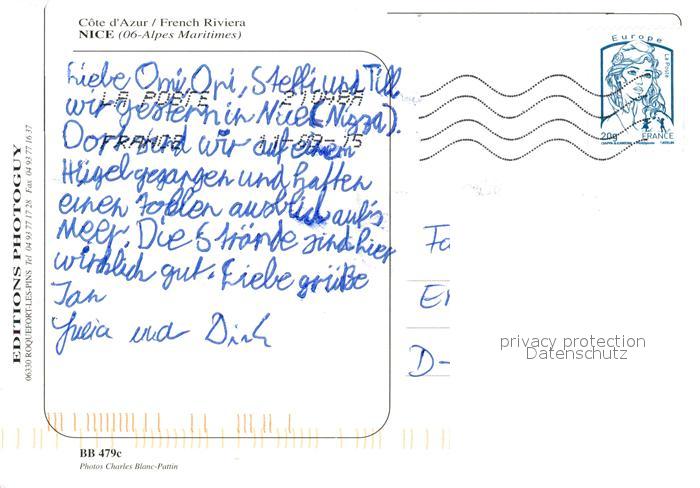 Côte d'Azur / French Riviera
NICE (06-Alpes Maritimes)
Europe
La Poste
20g FRANCE
LA POSTE 21048A
FRANCE 11-09-15
Liebe Omi, Opi, Steffi und Till
wir gestern in Nice (Nizza).
Dort sind wir auf einem
Hügel gegangen und hatten
einen tollen ausblick auf's
Meer. Die Strände sind hier
wirklich gut. Liebe grüße
Jan
Julia und Dirk
Fa
D-
privacy protection
Datenschutz
EDITIONS PHOTOGUY
06330 ROQUEFORT-LES-PINS Tél 04 93 77 17 28 Fax 04 93 77 16 37
BB 479c
Photos Charles Blanc-Pattin